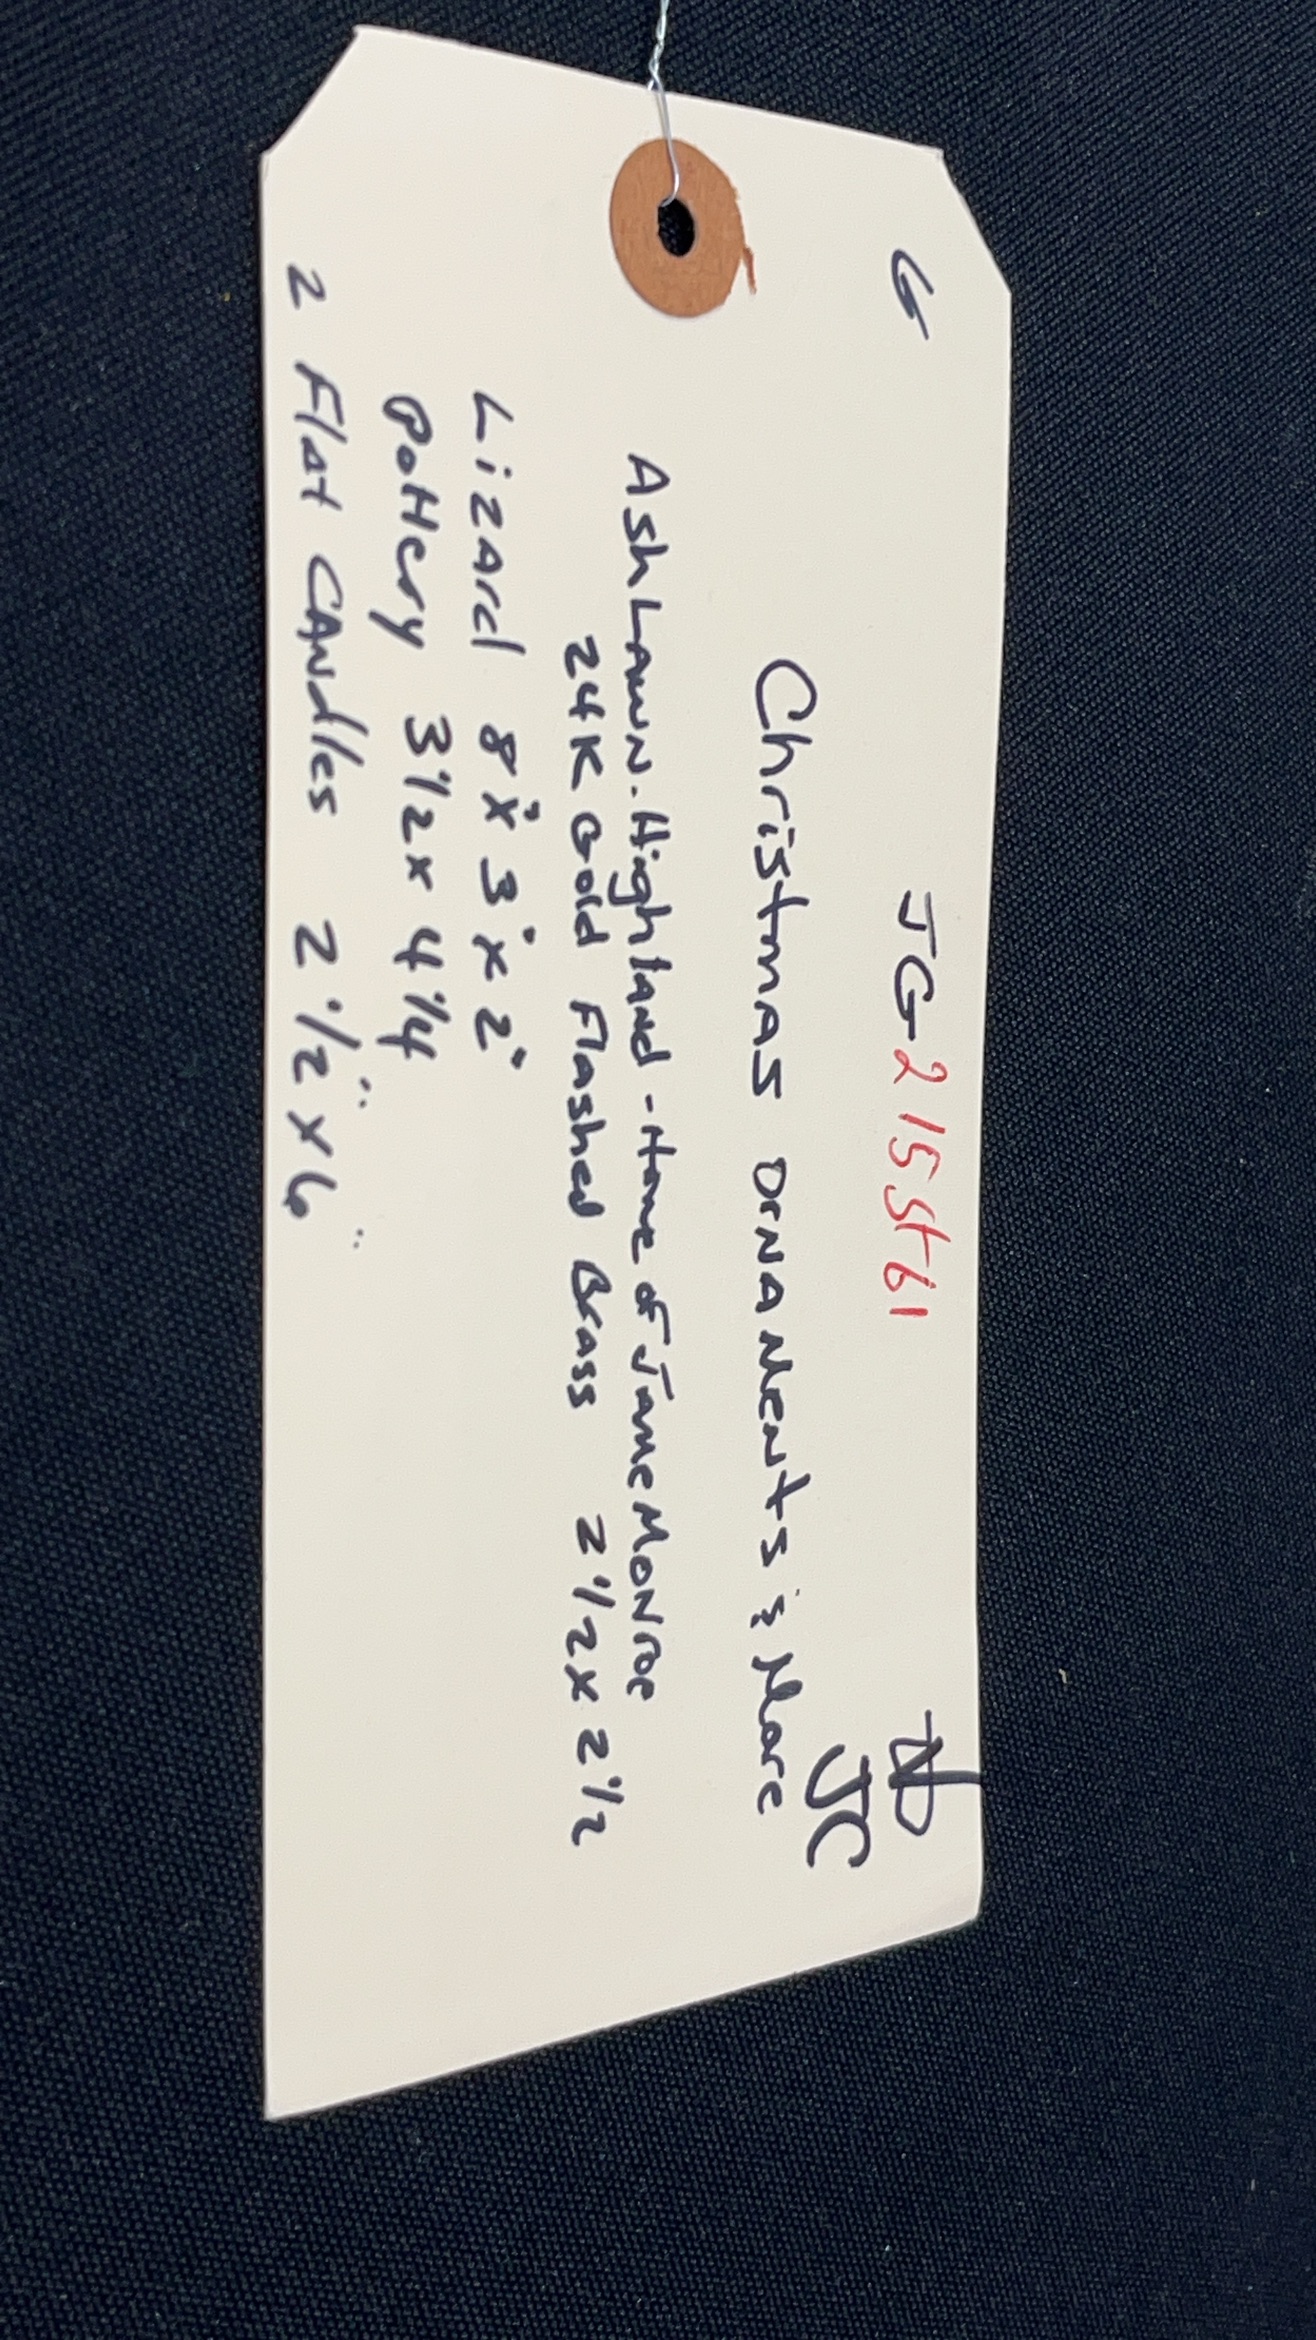 G JG 215St61
JC
Christmas Ornaments & More
Ash Lawn-Highland - Home of Jame Monroe
24K Gold Flashed Brass 2 1/2 x 2 1/2
Lizard 8" x 3" x 2"
Pottery 3 1/2 x 4 1/4
2 Flat Candles 2 1/2" x 6"